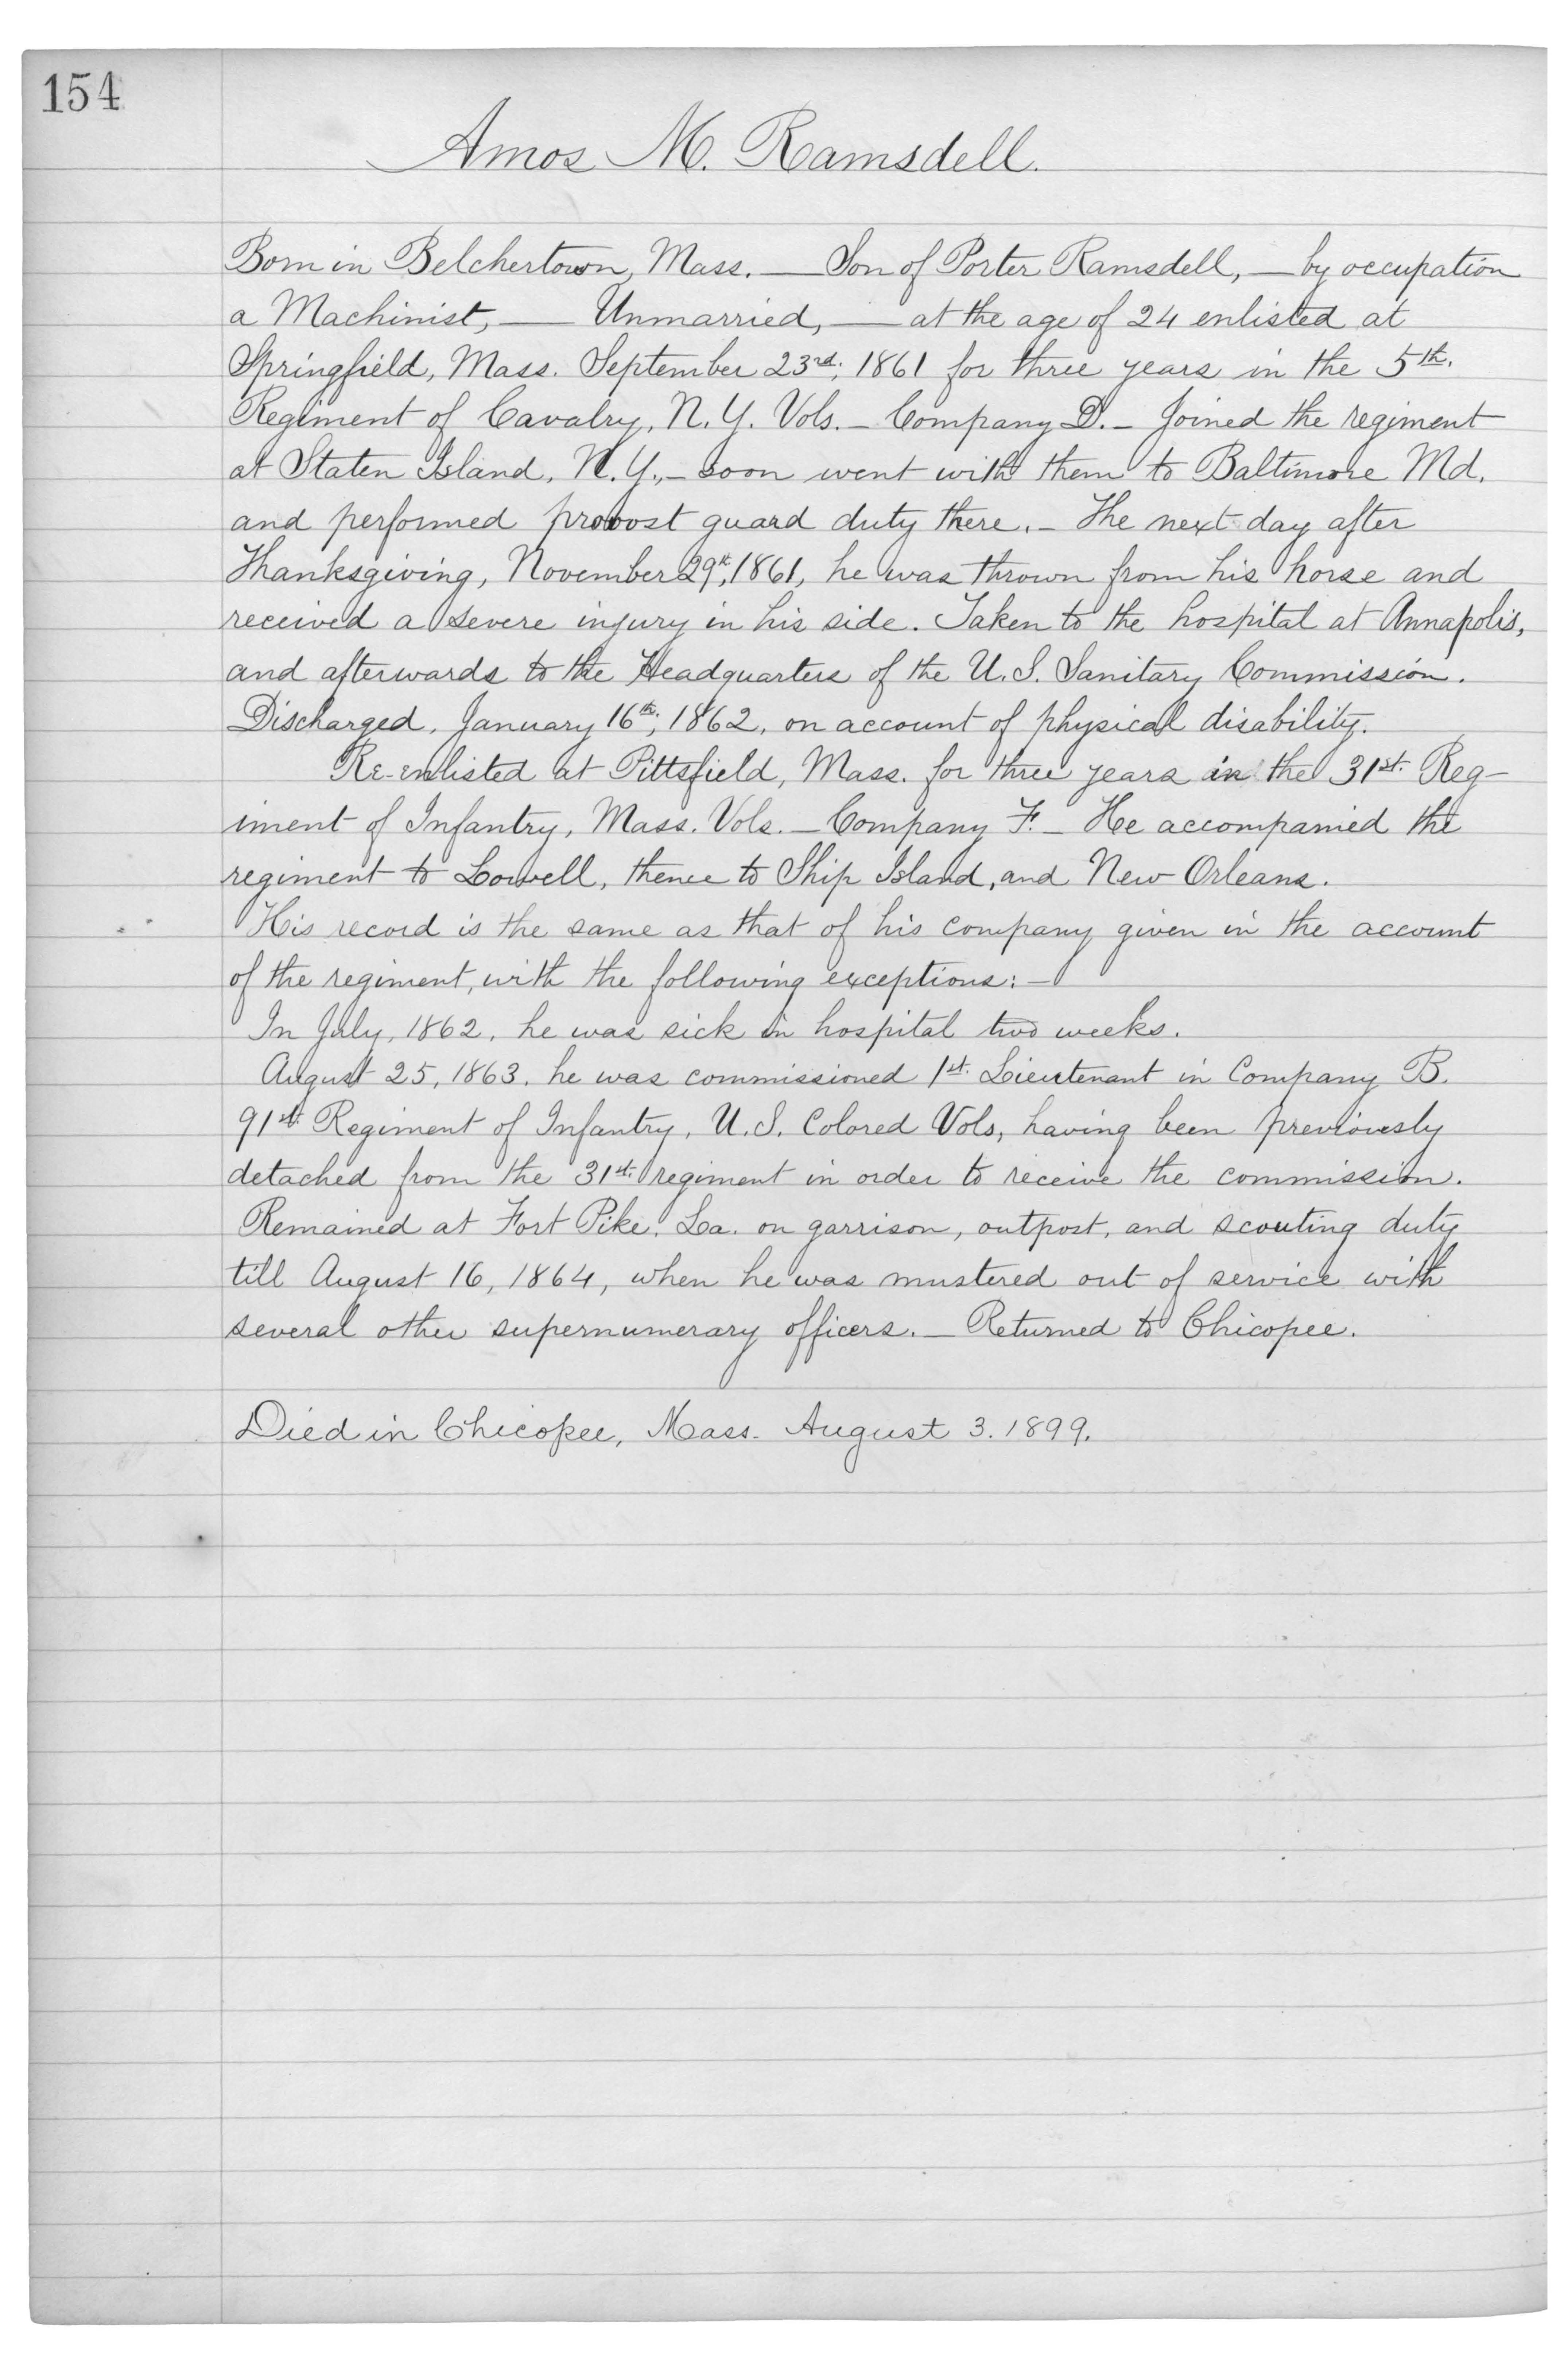 154
Amos M. Ramsdell.
Born in Belchertown, Mass. — Son of Porter Ramsdell, — by occupation
a Machinist, — Unmarried, — at the age of 24 enlisted at
Springfield, Mass. September 23rd, 1861 for three years in the 5th.
Regiment of Cavalry, N.Y. Vols. — Company D. — Joined the regiment
at Staten Island, N.Y., — soon went with them to Baltimore Md.
and performed provost guard duty there. — The next day after
Thanksgiving, November 29th, 1861, he was thrown from his horse and
received a severe injury in his side. Taken to the hospital at Annapolis,
and afterwards to the Headquarters of the U.S. Sanitary Commission.
Discharged, January 16th, 1862, on account of physical disability.
Re-enlisted at Pittsfield, Mass. for three years in the 31st. Reg-
iment of Infantry, Mass. Vols. — Company F. — He accompanied the
regiment to Lowell, thence to Ship Island, and New Orleans.
His record is the same as that of his company given in the account
of the regiment, with the following exceptions: —
In July, 1862, he was sick in hospital two weeks.
August 25, 1863, he was commissioned 1st. Lieutenant in Company B.
91st. Regiment of Infantry, U.S. Colored Vols, having been previously
detached from the 31st. regiment in order to receive the commission.
Remained at Fort Pike, La. on garrison, outpost, and scouting duty
till August 16, 1864, when he was mustered out of service with
several other supernumerary officers. — Returned to Chicopee.
Died in Chicopee, Mass. August 3. 1899.